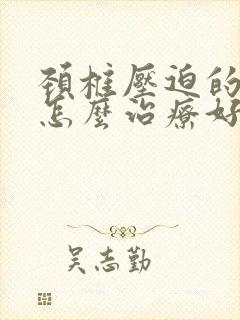 頚椎壓迫的
怎麼治療好
吳志勤